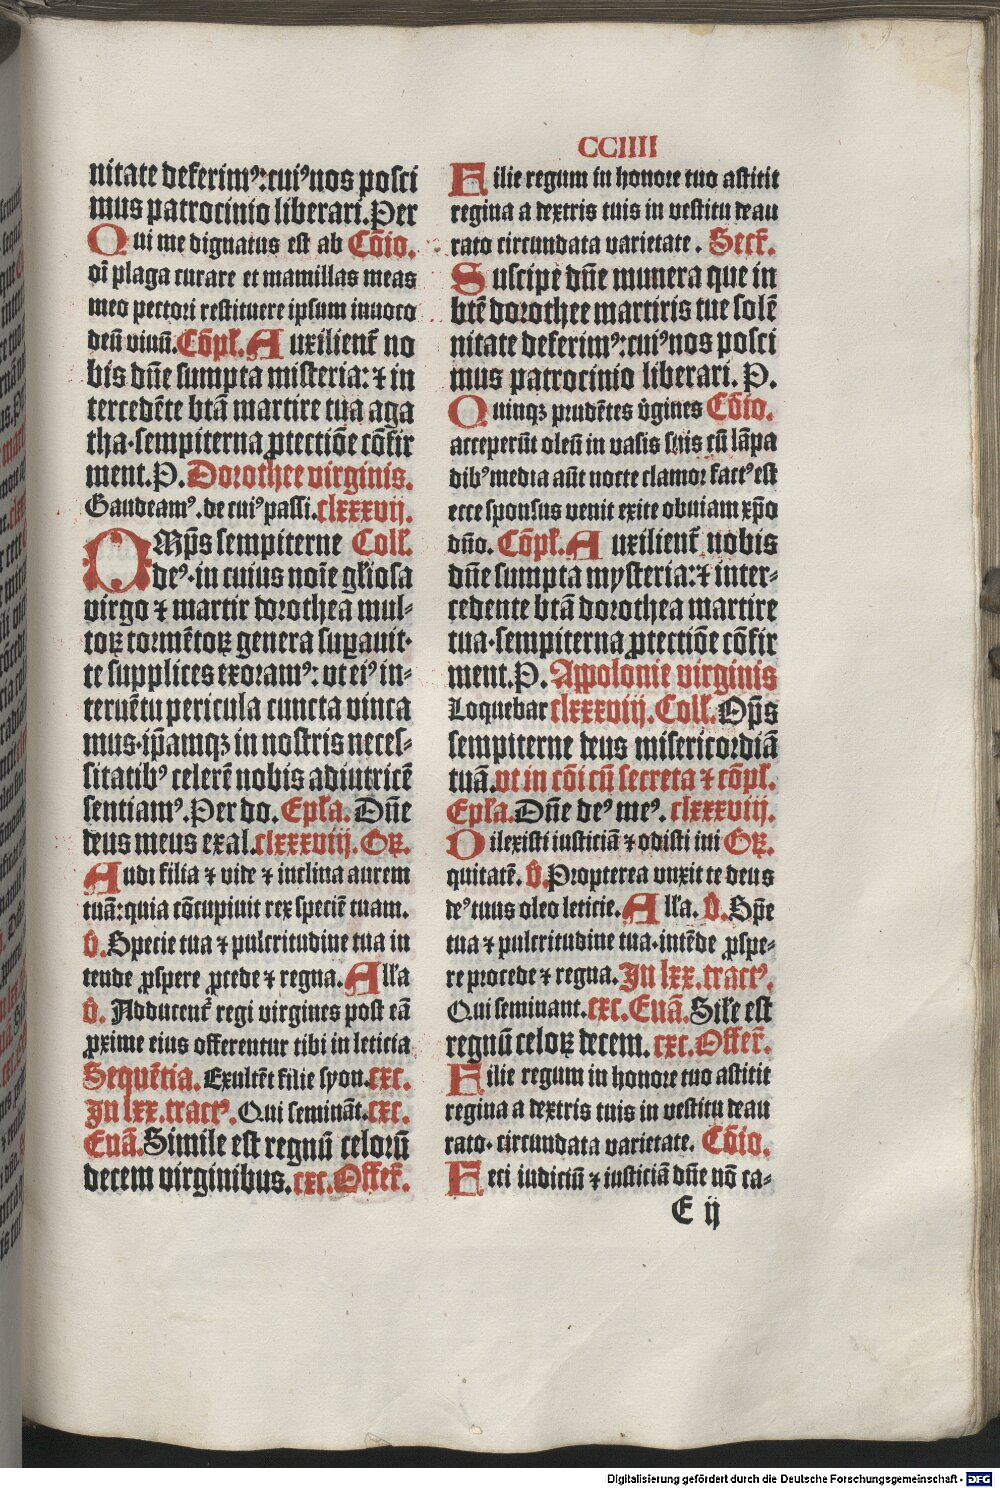 CCIIII
nitate deferimꝰ: cuiꝰ nos posci
mus patrocinio liberari. Per
Qui me dignatus est ab Cōio.
oī plaga curare et mamillas meas
meo pectori restituere ipsum inuoco
deū viuū. Cōpl. Auxilient᷑ no
bis dn̄e sumpta misteria: ⁊ in
tercedēte btā martire tua aga
tha·sempiterna ꝓtectiōe cōfir
ment. P. Dorothee virginis.
Gaudeamꝰ. de cuiꝰ passi. clxxxvij.
OMp̄s sempiterne Coll.
deꝰ· in cuius noīe gl̄iosa
virgo ⁊ martir dorothea mul-
toꝝ tormētoꝝ genera suꝑauit·
te supplices exoramꝰ: vt eiꝰ in-
teruētu pericula cuncta vinca
mus·ip̄amqꝫ in nostris neces-
sitatibꝰ celerē nobis adiutricē
sentiamꝰ. Per do. Epl̄a. Dn̄e
deus meus exal. clxxxviij. Gꝝ.
Audi filia ⁊ vide ⁊ inclina aurem
tuā: quia cōcupiuit rex speciē tuam.
v̄. Specie tua ⁊ pulcritudine tua in
tende ꝓspere ꝓcede ⁊ regna. All'a
v̄. Adducent᷑ regi virgines post eā
ꝓxime eius offerentur tibi in leticia
Sequētia. Exultēt filie syon. cxc.
In lxx. tractꝰ. Qui semināt. cxc.
Euā. Simile est regnū celorū
decem virginibus. cxc. Offer̄.
Filie regum in honore tuo astitit
regina a dextris tuis in vestitu deau
rato circundata varietate. Secr̄.
Suscipe dn̄e munera que in
btē dorothee martiris tue solē
nitate deferimꝰ: cuiꝰ nos posci
mus patrocinio liberari. P.
Quinqꝫ prudētes v̄gines Cōio.
acceperūt oleū in vasis suis cū lāpa
dibꝰ media aūt nocte clamor factꝰ est
ecce sponsus venit exite obuiam xp̄o
dn̄o. Cōpl. Auxilient᷑ nobis
dn̄e sumpta mysteria: ⁊ inter-
cedente btā dorothea martire
tua·sempiterna ꝓtectiōe cōfir
ment. P. Appolonie virginis
Loquebar clxxxviij. Coll. Op̄s
sempiterne deus misericordiā
tuā. vt in cōi cū secreta ⁊ cōpl.
Epl̄a. Dn̄e deꝰ meꝰ. clxxxviij.
Dilexisti iusticiā ⁊ odisti ini Gꝝ.
quitatē. v̄. Propterea vnxit te deus
deꝰ tuus oleo leticie. All'a. v̄. Spē
tua ⁊ pulcritudine tua·intēde ꝓspe-
re procede ⁊ regna. In lxx. tractꝰ.
Qui seminant. cxc. Euā. Sil'e est
regnū celoꝝ decem. cxc. Offer̄.
Filie regum in honore tuo astitit
regina a dextris tuis in vestitu deau
rato· circundata varietate. Cōio.
Feci iudiciū ⁊ iusticiā dn̄e nō ca-
E ij
Digitalisierung gefördert durch die Deutsche Forschungsgemeinschaft - DFG